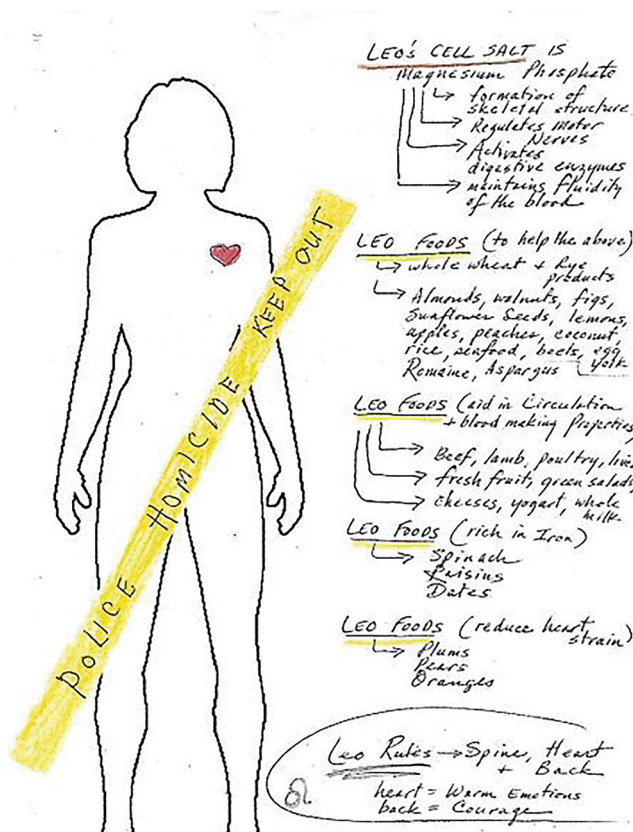 POLICE HOMICIDE KEEP OUT
LEO'S CELL SALT IS
Magnesium Phosphate
formation of
skeletal structure.
Regulates Motor
Nerves
Activates
digestive enzymes
maintains fluidity
of the blood
LEO FOODS (to help the above)
whole wheat + Rye
products
Almonds, walnuts, figs,
Sunflower Seeds, lemons,
apples, peaches, coconut,
rice, seafood, beets, egg
yolk
Romaine, Aspargus
LEO FOODS (aid in Circulation
+ blood making Properties)
Beef, lamb, poultry, live
fresh fruit, green salads,
Cheeses, yogart, whole
milk
LEO FOODS (rich in Iron)
Spinach
Raisins
Dates
LEO FOODS (reduce heart
strain)
Plums
Pears
Oranges
Leo Rules → Spine, Heart
+ Back
heart = Warm Emotions
back = Courage
♌